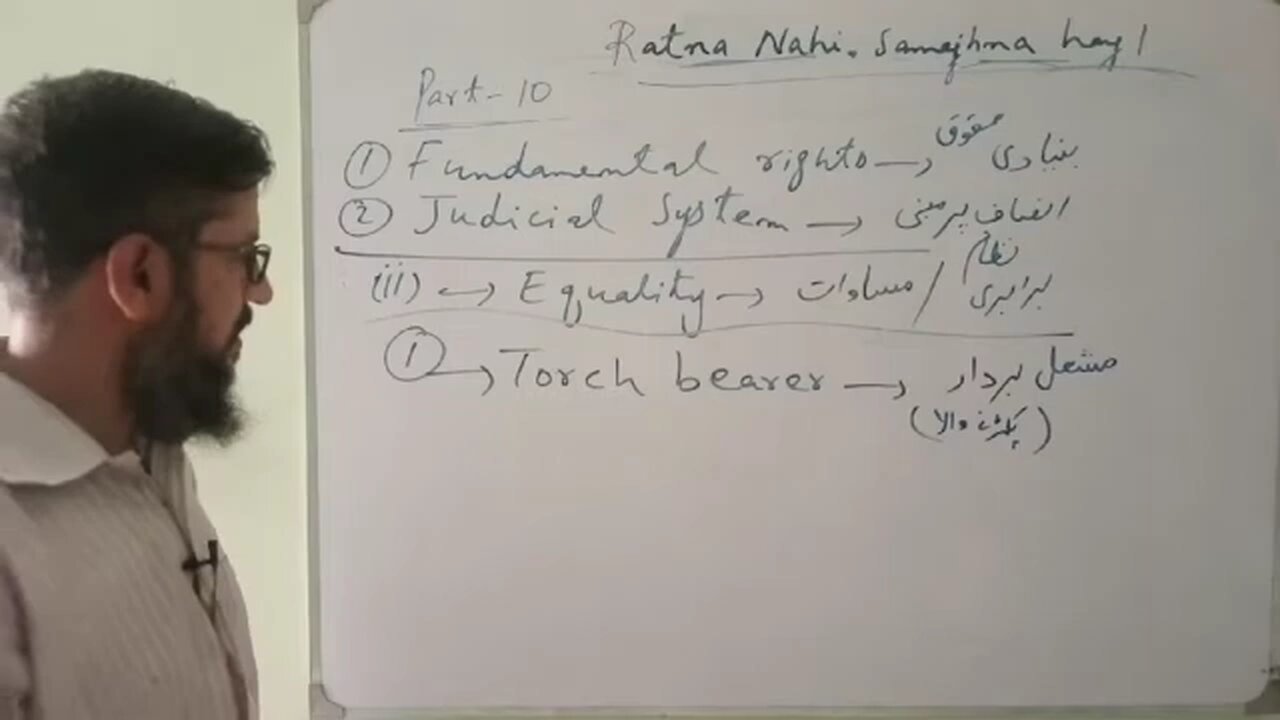 Ratna Nahi. Samajhna hay!
Part-10
① Fundamental rights → بنیادی حقوق
② Judicial System → انصاف پر مبنی نظام
(ii) → Equality → مساوات / برابری
① → Torch bearer → مشعل بردار
(پکڑنے والا)